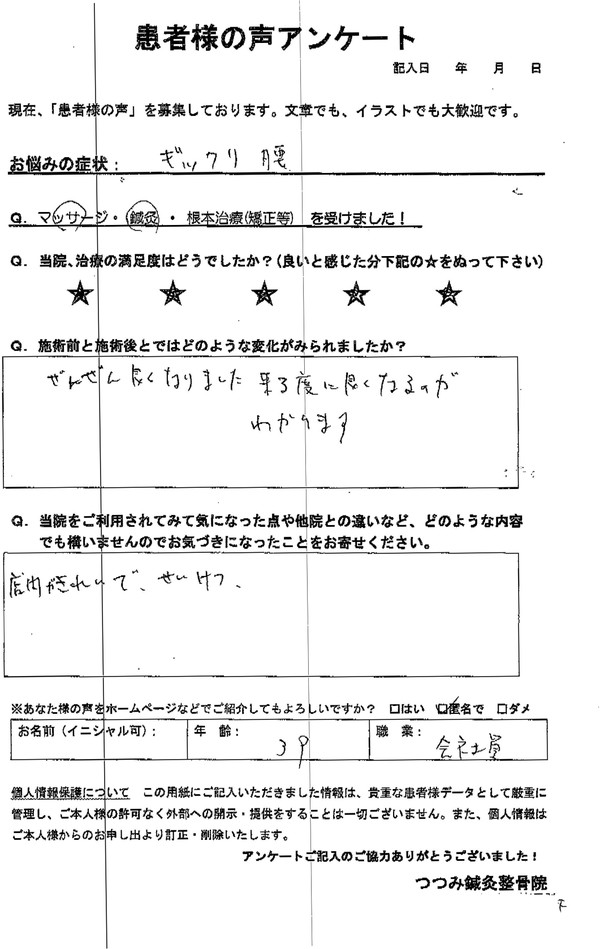 患者様の声アンケート
記入日 年 月 日
現在、「患者様の声」を募集しております。文章でも、イラストでも大歓迎です。
お悩みの症状： ギックリ腰
Q. マッサージ・鍼灸・根本治療(矯正等) を受けました！
Q. 当院、治療の満足度はどうでしたか？(良いと感じた分下記の☆をぬって下さい)
★ ★ ★ ★ ★
Q. 施術前と施術後とではどのような変化がみられましたか？
ぜんぜん良くなりました 来る度に良くなるのが
わかります
Q. 当院をご利用されてみて気になった点や他院との違いなど、どのような内容
でも構いませんのでお気づきになったことをお寄せください。
店内がきれいで、せいけつ、
※あなた様の声をホームページなどでご紹介してもよろしいですか？ □はい ☑匿名で □ダメ
お名前(イニシャル可)： 年 齢： 39 職 業： 会社員
個人情報保護について この用紙にご記入いただきました情報は、貴重な患者様データとして厳重に
管理し、ご本人様の許可なく外部への開示・提供をすることは一切ございません。また、個人情報は
ご本人様からのお申し出より訂正・削除いたします。
アンケートご記入のご協力ありがとうございました！
つつみ鍼灸整骨院